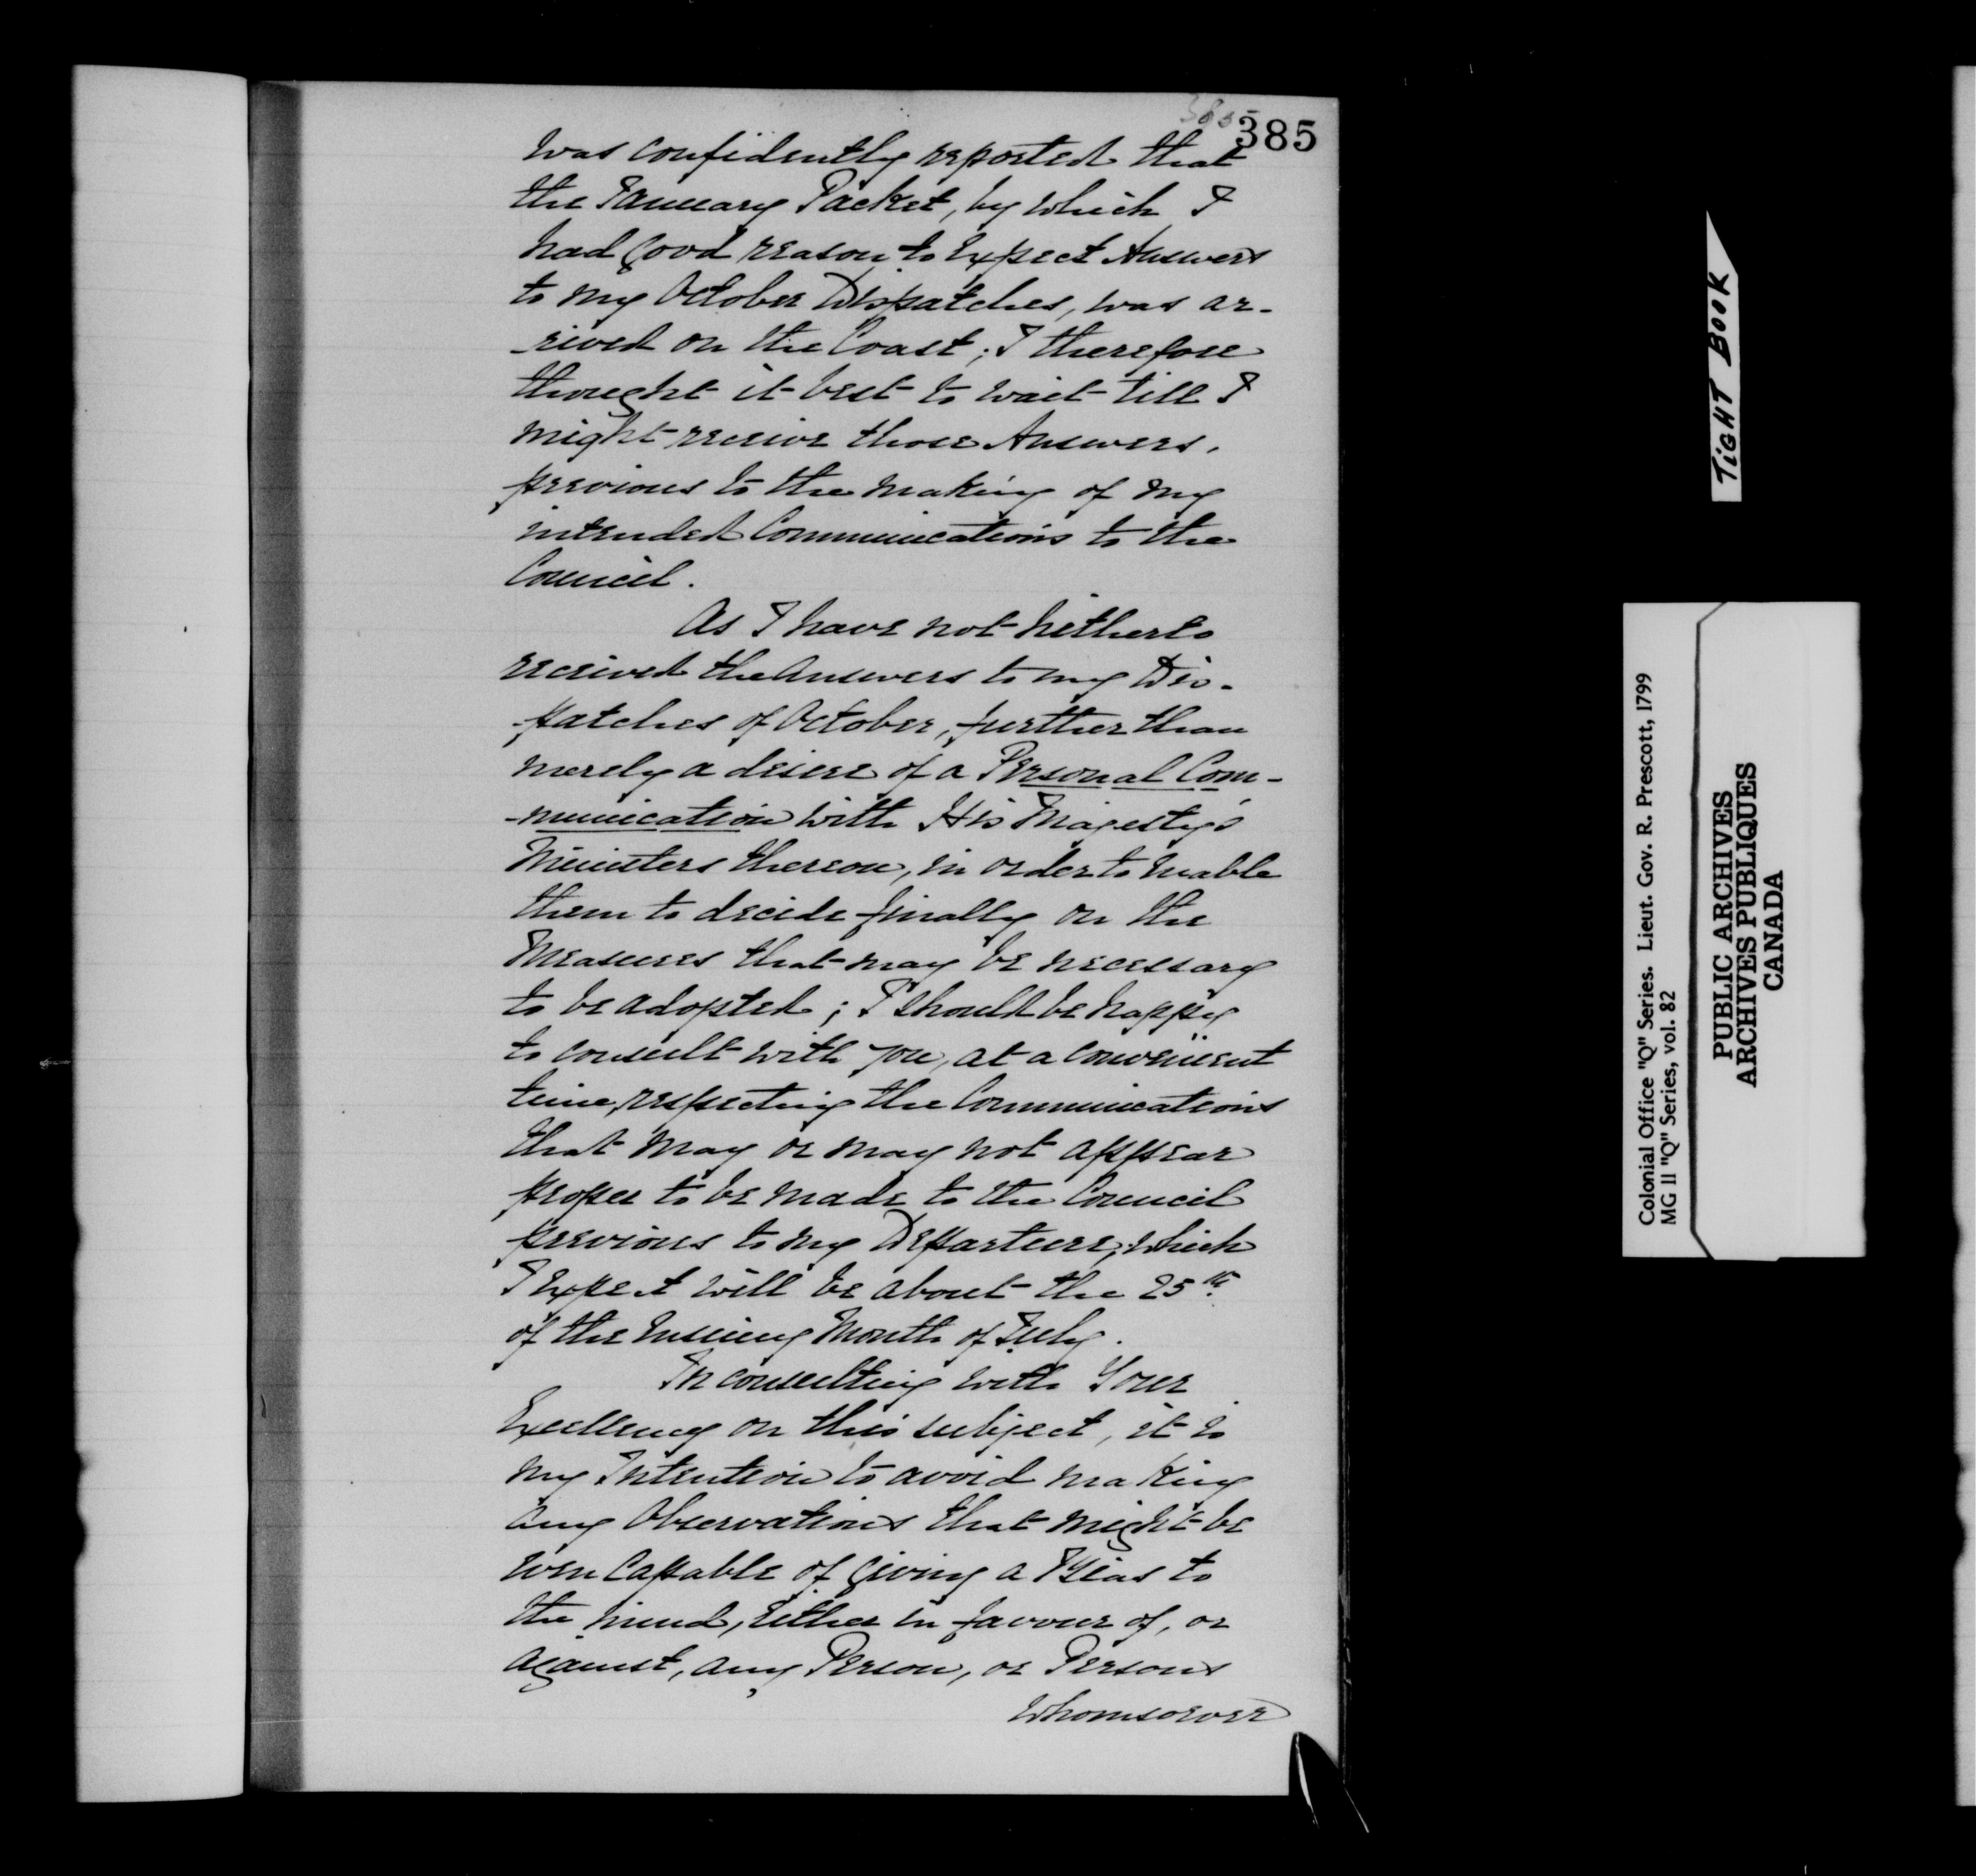 385
was confidently reported that
the January Packet, by which I
had good reason to Expect Answers
to my October Dispatches, was ar-
-rived on the Coast; I therefore
thought it best to wait till I
might receive those Answers,
previous to the making of my
intended Communications to the
Council.
As I have not hitherto
received the Answers to my Dis-
-patches of October, further than
merely a desire of a Personal Com-
-munication with His Majesty's
Ministers thereon, in order to enable
them to decide finally on the
Measures that may be necessary
to be adopted; I should be happy
to consult with you, at a convenient
time, respecting the Communications
that may or may not appear
proper to be made to the Council
previous to my Departure, which
I expect will be about the 25th
of the Ensuing Month of July.
In consulting with Your
Excellency on this subject, it is
my Intention to avoid making
any Observations that might be
even Capable of giving a Bias to
the mind, Either in favour of, or
against, any Person, or Persons
Whomsoever
TIGHT BOOK
Colonial Office "Q" Series. Lieut. Gov. R. Prescott, 1799
MG 11 "Q" Series, vol. 82
PUBLIC ARCHIVES
ARCHIVES PUBLIQUES
CANADA